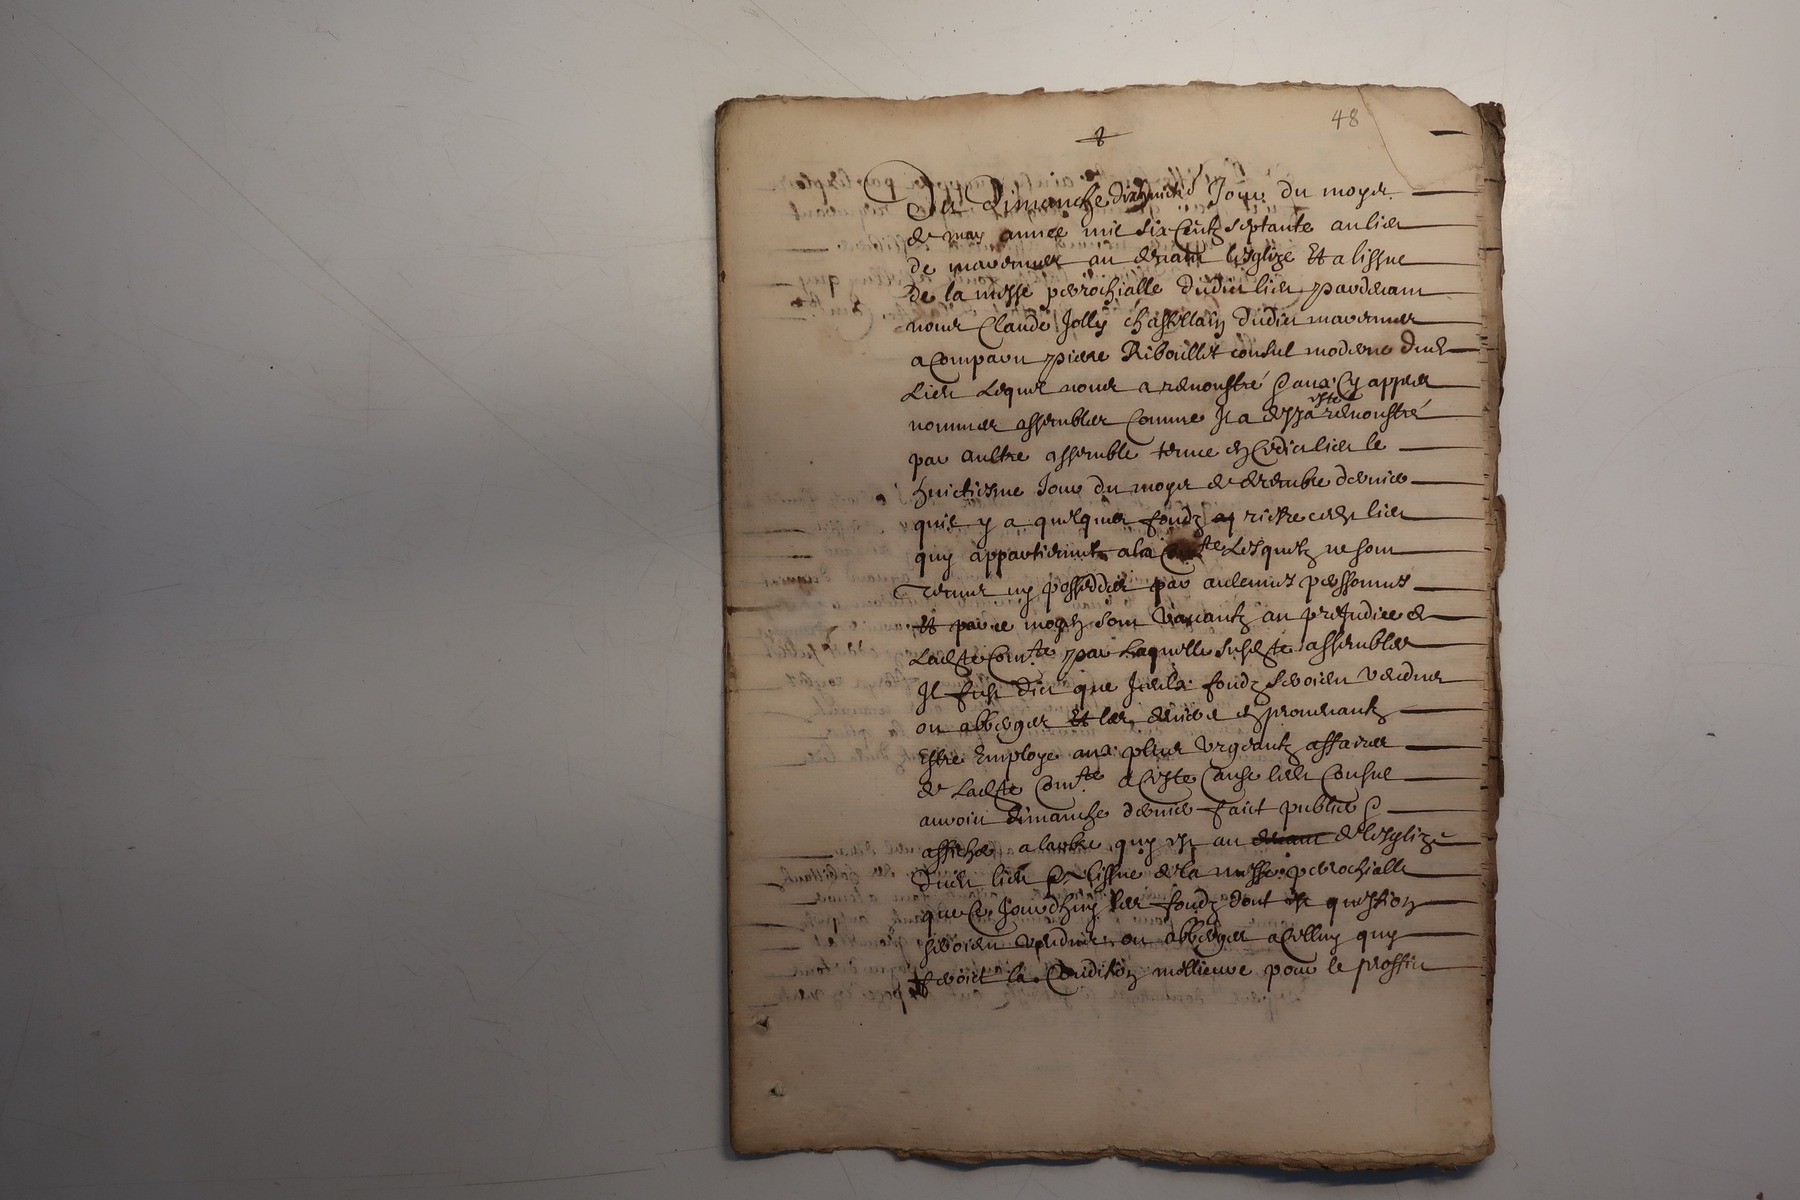 48
Du Dimanche dixhuictie Jour du moys
de may annee mil six Centz septante au lieu
de au devant lesglize Et a lissue
De la messe perrochialle dudict lieu pardevant
nous Claude Jolly chastellain dudict
a Comparu pierre Riboullet consul moderne dud
Lieu Lequel nous a remonstré aux Cy appres
nommes assembles Comme Il a desja esté remonstré
par aultre assemble tenue le
huictiesme Jour du moys de dernier
quil y a quelques fondz riere cest lieu
quy appartiennent a la Lesquelz ne sont
Tenus ny possedes par aulcunes personnes
Et par ce moyen sont vaccantz au prejudice de
Ladte Comte par Laquelle susdte assemblee
Il fust dict que Iceulx fondz seroient vendus
ou abberges Et les deniers en provenantz
Estre Employe aux plus urgentz affaires
de Ladte Comte a Ceste Cause led Consul
auroit dimanche dernier faict publier
affiche a larbre quy est au devant de lesglize
dudt lieu lissue de la messe perrochialle
que Ce Jourdhuy les fondz dont est question
seroient vendus ou abberges a Celluy quy
feroict la Condition meillieure pour le proffict